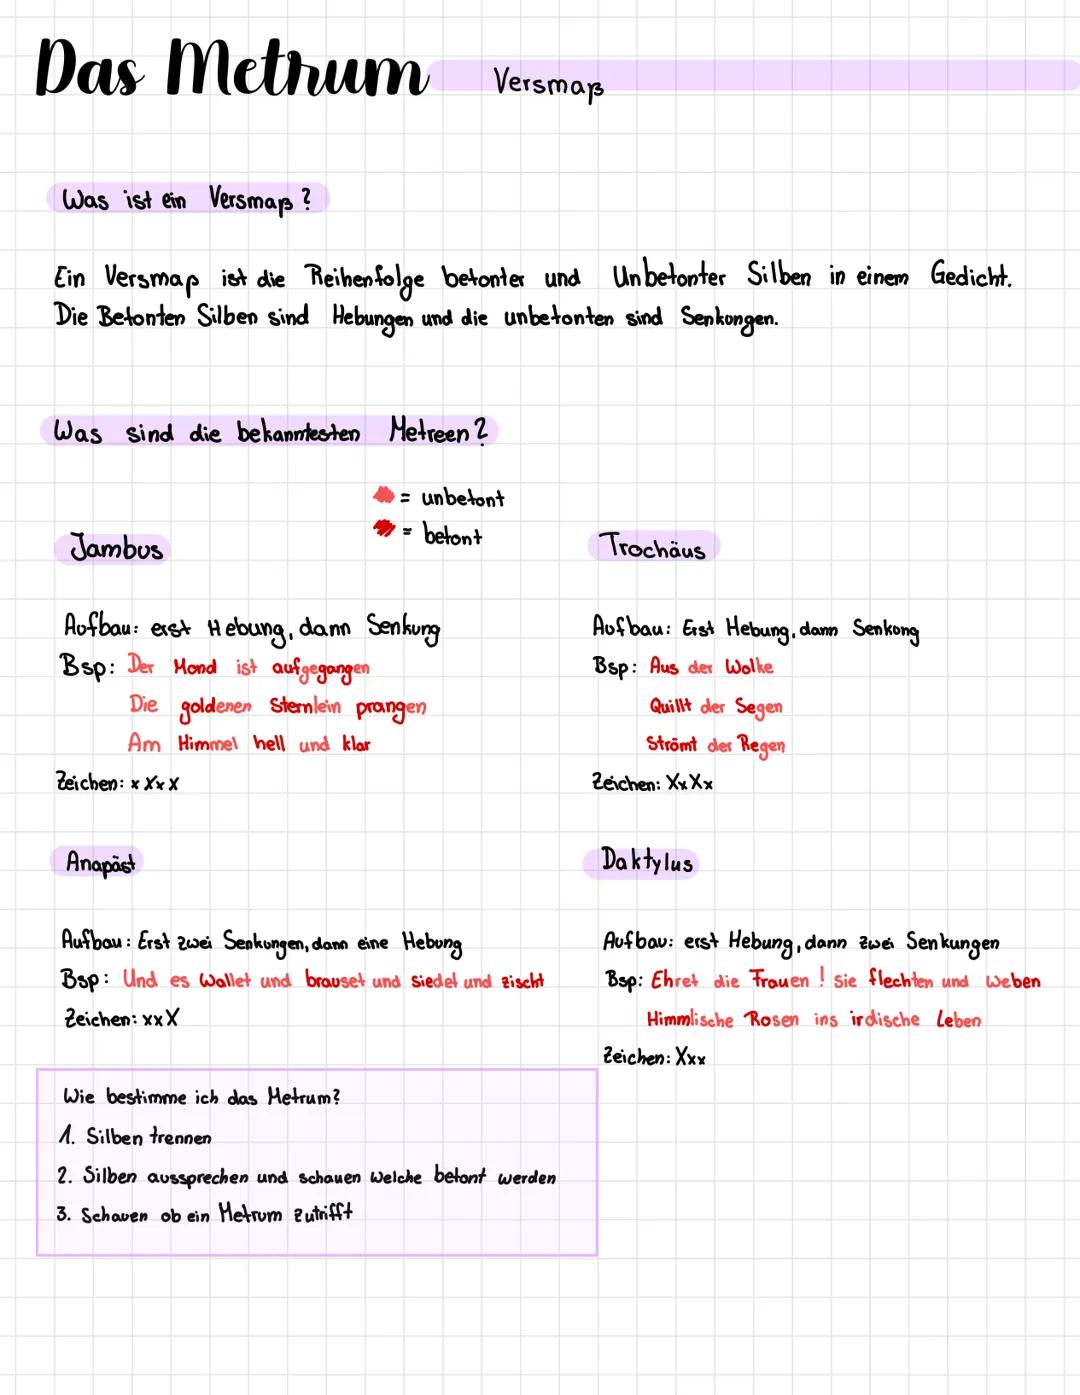 Das Metrum Versmaß
Was ist ein Versmaß?
Ein Versmaß ist die Reihenfolge betonter und Unbetonter Silben in einem Gedicht.
Die Betonten Silben sind Hebungen und die unbetonten sind Senkungen.
Was sind die bekanntesten Metreen?
= unbetont
= betont
Jambus
Aufbau: erst Hebung, dann Senkung
Bsp: Der Mond ist aufgegangen
Die goldenen Sternlein prangen
Am Himmel hell und klar
Zeichen: xXxX
Trochäus
Aufbau: Erst Hebung, dann Senkung
Bsp: Aus der Wolke
Quillt der Segen
Strömt der Regen
Zeichen: XxXx
Anapäst
Aufbau: Erst zwei Senkungen, dann eine Hebung
Bsp: Und es Wallet und brauset und siedet und zischt
Zeichen: xxX
Daktylus
Aufbau: erst Hebung, dann zwei Senkungen
Bsp: Ehret die Frauen! Sie flechten und weben
Himmlische Rosen ins irdische Leben
Zeichen: Xxx
Wie bestimme ich das Metrum?
1. Silben trennen
2. Silben aussprechen und schauen welche betont werden
3. Schauen ob ein Metrum zutrifft